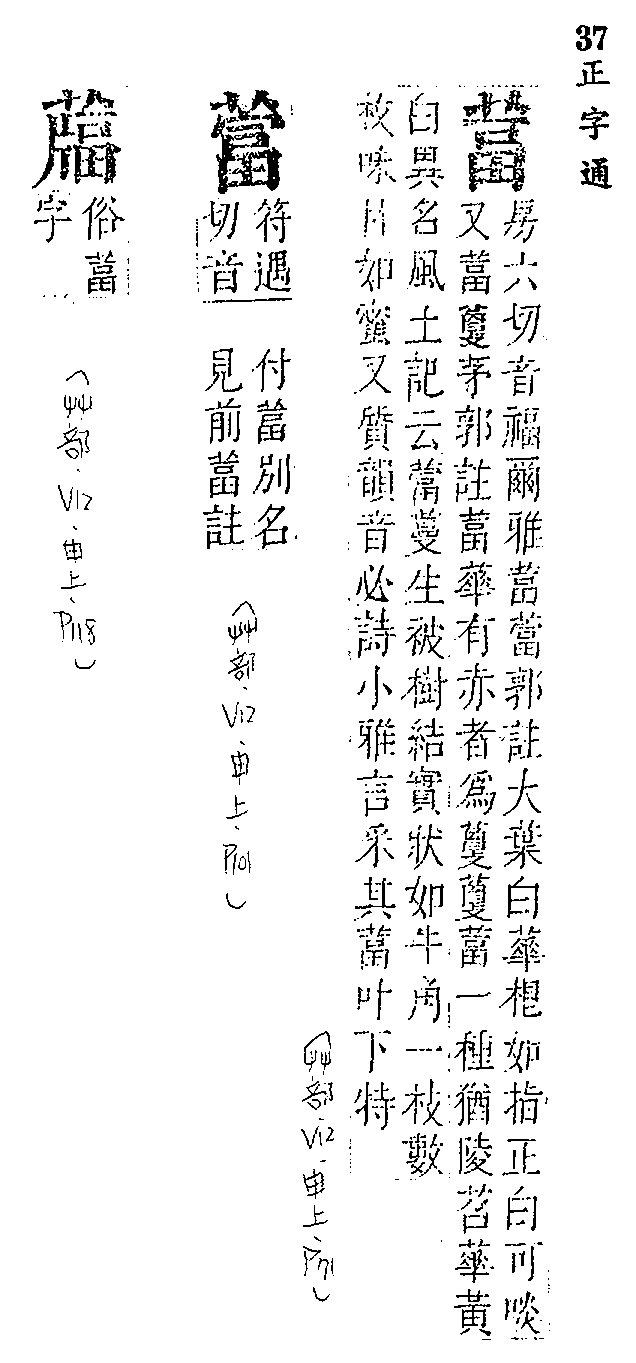 37 正字通
葍
房六切音福爾雅葍䔰郭註大葉白華根如指正白可啖
又葍藑茅郭註葍華有赤者爲藑藑葍一種猶陵苕華黃
白異名風土記云䔰蔓生被樹結實狀如牛角一枝數
枚味甘如蜜又質韻音必詩小雅言采其葍叶下特
(艸部.V12.申上.P71)
䔰
符遇
切音
付葍別名
見前葍註
(艸部.V12.申上.P101)
俗葍
字
(艸部.V12.申上.P118)